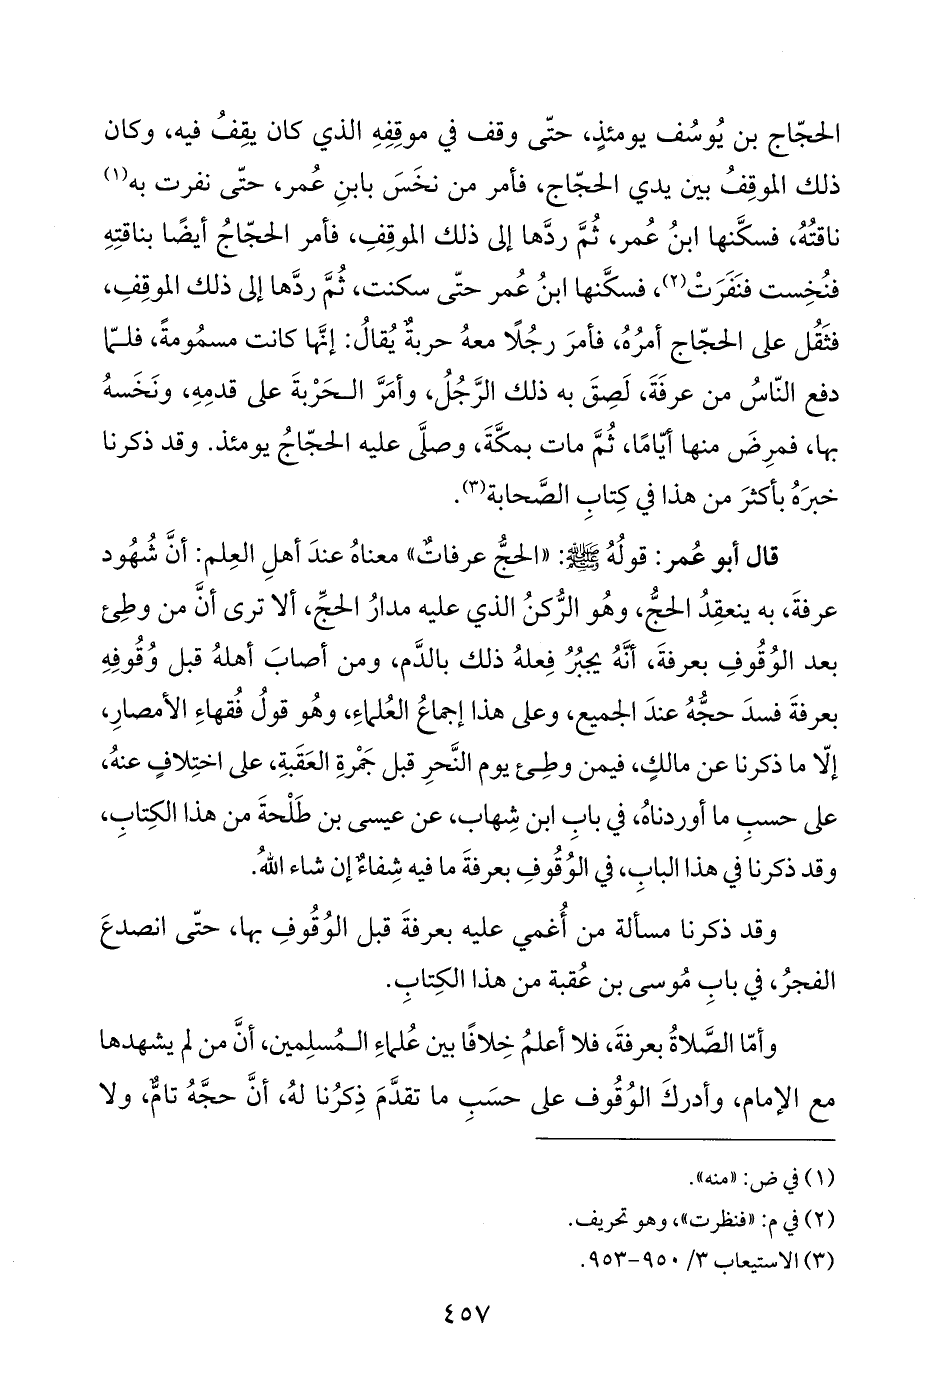 الحجّاج بن يُوسُف يومئذٍ، حتّى وقف في موقِفِهِ الذي كان يقِفُ فيه، وكان
ذلك الموقِفُ بين يدي الحجّاج، فأمر من نخَسَ بابنِ عُمر، حتّى نفرت به(١)
ناقتُهُ، فسكَّنها ابنُ عُمر، ثُمَّ ردَّها إلى ذلك الموقِفِ، فأمر الحجّاجُ أيضًا بناقتِهِ
فنُخِست فنَفَرَتْ(٢)، فسكَّنها ابنُ عُمر حتّى سكنت، ثُمَّ ردَّها إلى ذلك الموقِفِ،
فثقُل على الحجّاج أمرُهُ، فأمرَ رجُلًا معهُ حربةٌ يُقالُ: إنَّها كانت مسمُومةً، فلمّا
دفع النّاسُ من عرفةَ، لَصِقَ به ذلك الرَّجُلُ، وأمَرَّ الحَرْبةَ على قدمِهِ، ونَخَسهُ
بها، فمرِضَ منها أيّامًا، ثُمَّ مات بمكَّةَ، وصلَّى عليه الحجّاجُ يومئذ. وقد ذكرنا
خبرَهُ بأكثرَ من هذا في كِتابِ الصَّحابة(٣).
قال أبو عُمر: قولُهُ ﷺ: «الحجُّ عرفاتٌ» معناهُ عندَ أهلِ العِلم: أنَّ شُهُود
عرفةَ، به ينعقِدُ الحجُّ، وهُو الرُّكنُ الذي عليه مدارُ الحجِّ، ألا ترى أنَّ من وطِئ
بعد الوُقُوفِ بعرفةَ، أنَّهُ يجبُرُ فِعلهُ ذلك بالدَّم، ومن أصابَ أهلهُ قبل وُقُوفِهِ
بعرفةَ فسدَ حجُّهُ عندَ الجميع، وعلى هذا إجماعُ العُلماءِ، وهُو قولُ فُقهاءِ الأمصارِ،
إلّا ما ذكرنا عن مالكٍ، فيمن وطِئ يوم النَّحرِ قبل جَمْرةِ العَقَبةِ، على اختِلافٍ عنهُ،
على حسبِ ما أوردناهُ، في بابِ ابن شِهاب، عن عيسى بن طَلْحةَ من هذا الكِتابِ،
وقد ذكرنا في هذا البابِ، في الوُقُوفِ بعرفةَ ما فيه شِفاءٌ إن شاء اللهُ.
وقد ذكرنا مسألة من أُغمي عليه بعرفةَ قبل الوُقُوفِ بها، حتّى انصدعَ
الفجرُ، في بابِ مُوسى بن عُقبة من هذا الكِتابِ.
وأمّا الصَّلاةُ بعرفةَ، فلا أعلمُ خِلافًا بين عُلماءِ المُسلمين، أنَّ من لم يشهدها
مع الإمام، وأدركَ الوُقُوف على حسَبِ ما تقدَّمَ ذِكرُنا لهُ، أنَّ حجَّهُ تامٌّ، ولا
(١) في ض: «منه».
(٢) في م: «فنظرت»، وهو تحريف.
(٣) الاستيعاب ٣/ ٩٥٠-٩٥٣.
٤٥٧